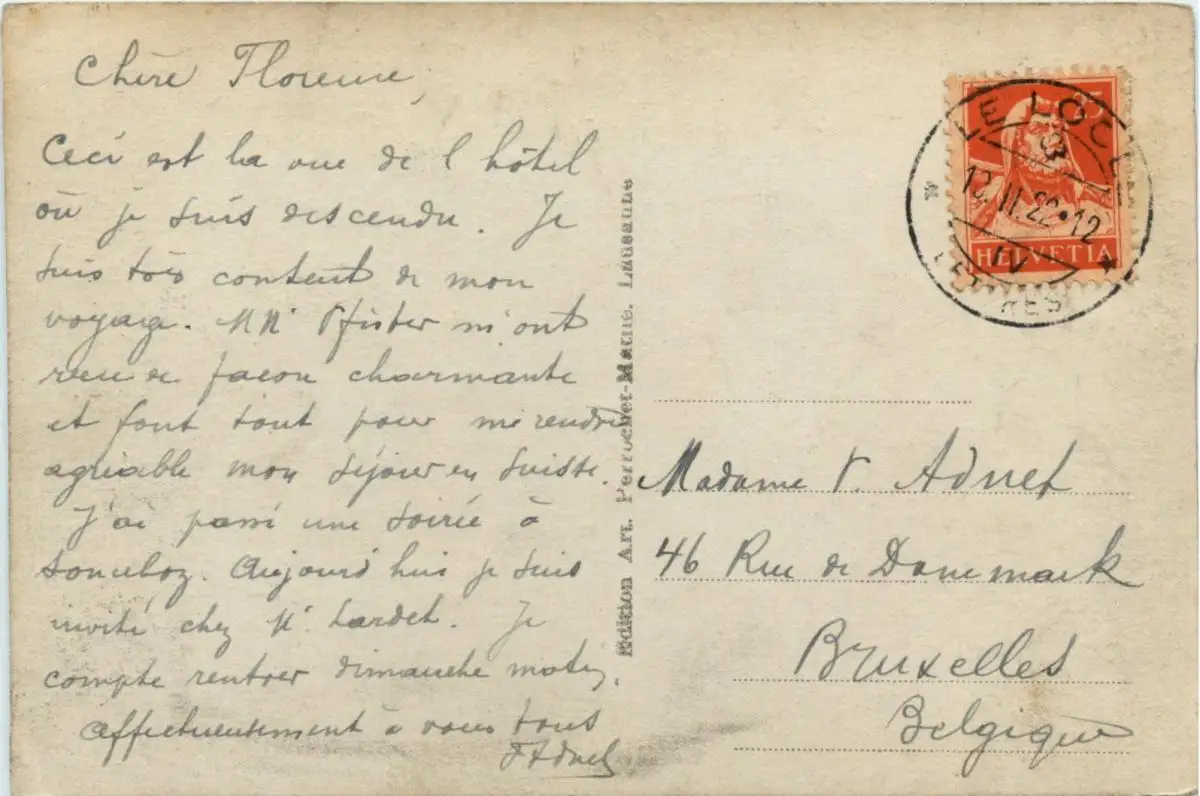 Chère Florence,
Ceci est la vue de l'hôtel
où je suis descendu. Je
suis très content de mon
voyage. MM Pfister m'ont
reçu de façon charmante
et font tout pour me rendre
agréable mon séjour en Suisse.
J'ai passé une soirée à
Sonceboz. Aujourd'hui je suis
invité chez Mr Lardet. Je
compte rentrer dimanche matin.
Affectueusement à vous tous
FAdnet
Edition Art. Perrochet-Matile, Lausanne
LE LOCLE
25
13.II.22•12
IV
HELVETIA
LETTRES
Madame V. Adnet
46 Rue de Danemark
Bruxelles
Belgique